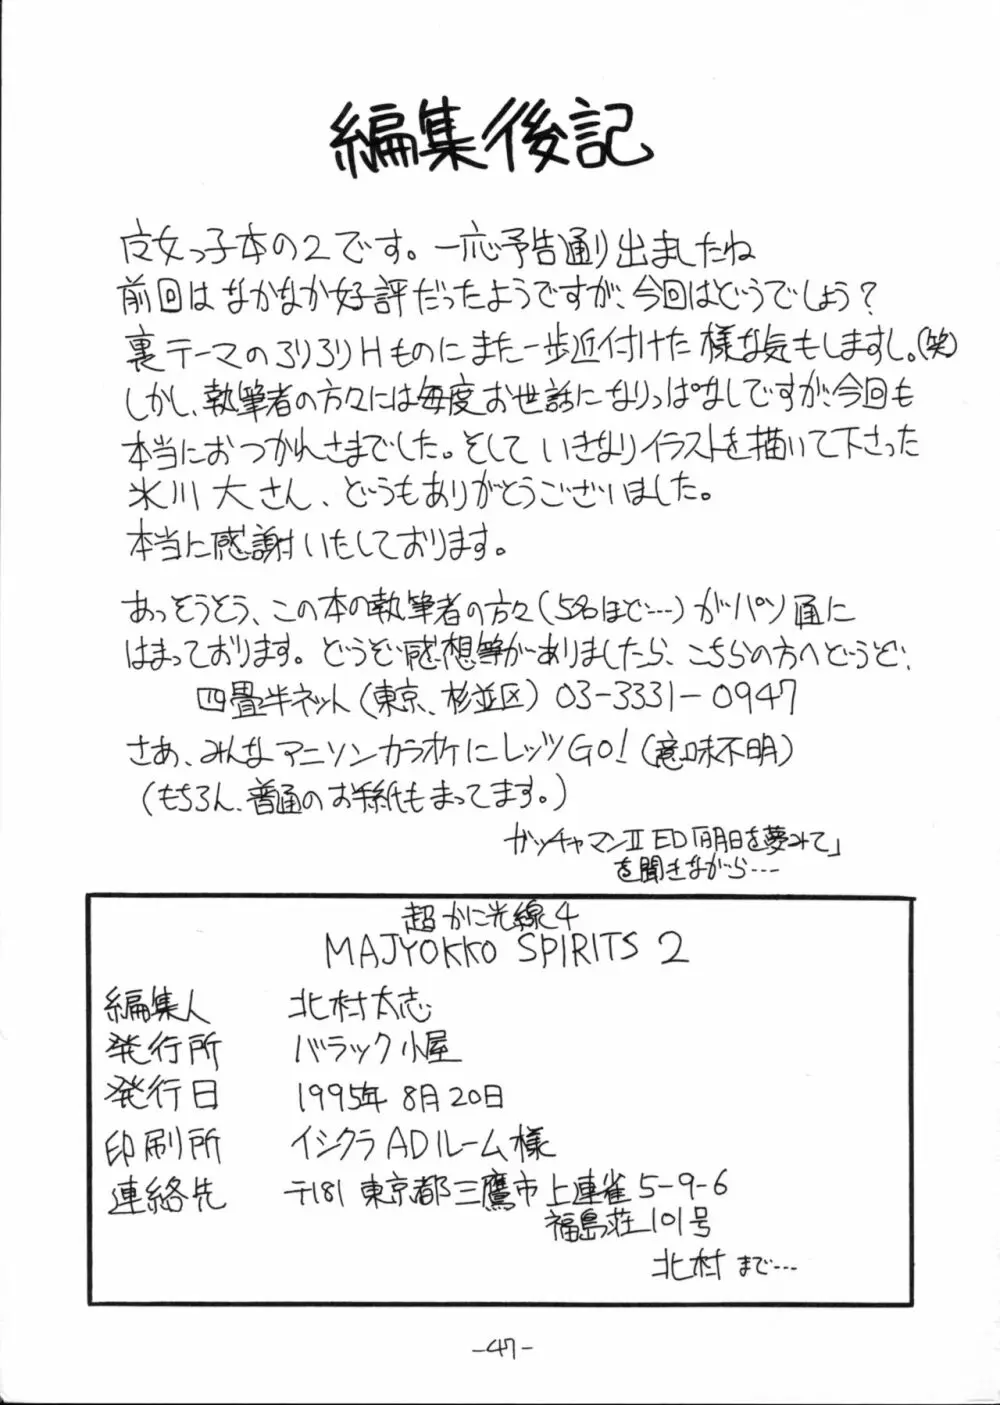 編集後記
魔女っ子本の2です。一応予告通り出ましたね
前回はなかなか好評だったようですが、今回はどうでしょう?
裏テーマのろりろりHものにまた一歩近付けた様な気もしますし。(笑)
しかし、執筆者の方々には毎度お世話になりっぱなしですが、今回も
本当におつかれさまでした。そして いきなりイラストを描いて下さった
氷川 大さん、どうもありがとうございました。
本当に感謝いたしております。
あっそうそう、この本の執筆者の方々(5名ほど…)がパソ通に
はまっております。どうぞ感想等がありましたら、こちらの方へどうぞ、
四畳半ネット(東京、杉並区) 03-3331-0947
さあ、みんなアニソンカラオケにレッツGO!(意味不明)
(もちろん、普通のお手紙もまってます。)
ガッチャマンⅡ ED「明日を夢みて」
を聞きながら…
超かに光線4
MAJYOKKO SPIRITS 2
編集人 北村太志
発行所 バラック小屋
発行日 1995年 8月20日
印刷所 イシクラADルーム様
連絡先 〒181 東京都三鷹市上連雀5-9-6
福島荘101号
北村 まで…
-47-